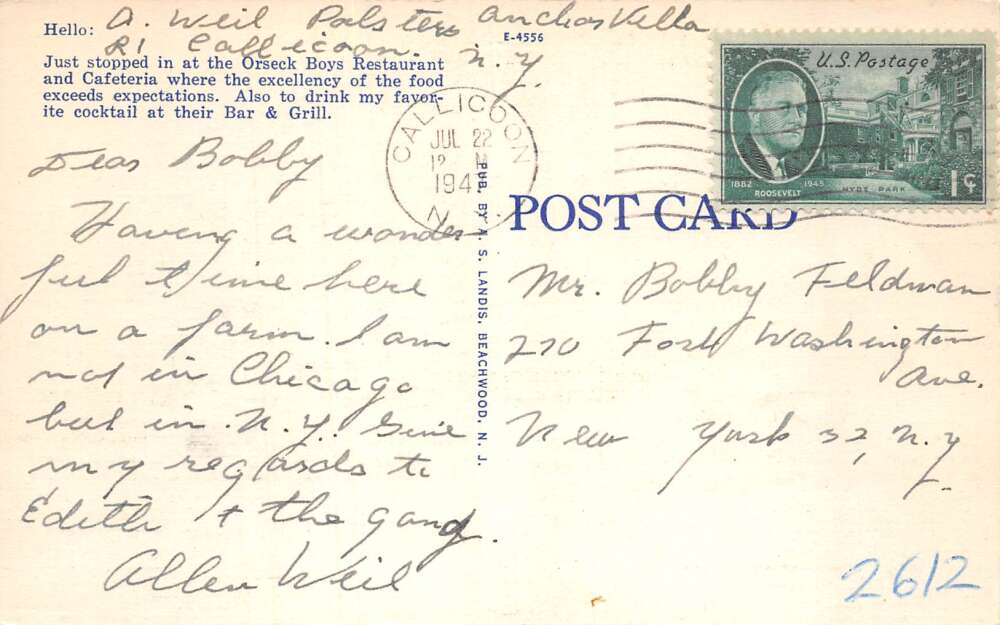 Hello: A. Weil Polsters Anchor Villa
R1 Callicoon. N.Y.
E-4556
Just stopped in at the Orseck Boys Restaurant
and Cafeteria where the excellency of the food
exceeds expectations. Also to drink my favor-
ite cocktail at their Bar & Grill.
Dear Bobby
Having a wonder
ful time here
on a farm. I am
not in Chicago
but in N.Y. Give
my regards to
Edith + the gang.
Allen Weil
CALLICOON
JUL 22
12 M
194
N.
PUB. BY A. S. LANDIS, BEACHWOOD, N. J.
U.S. Postage
1882 1945
ROOSEVELT HYDE PARK
1¢
POST CARD
Mr. Bobby Feldman
270 Fort Washington
Ave.
New York 32, N.Y.
2612